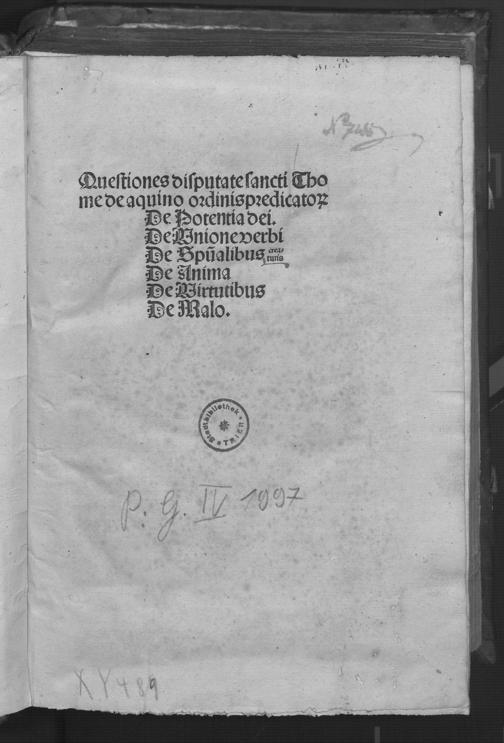 Questiones disputate sancti Tho
me de aquino ordinis predicatoꝝ
De Potentia dei.
De Unione verbi
De Spũalibus creaturis
De Anima
De Virtutibus
De Malo.
Stadtbibliothek * TRIER *
P. G. IV 1097
XY 489